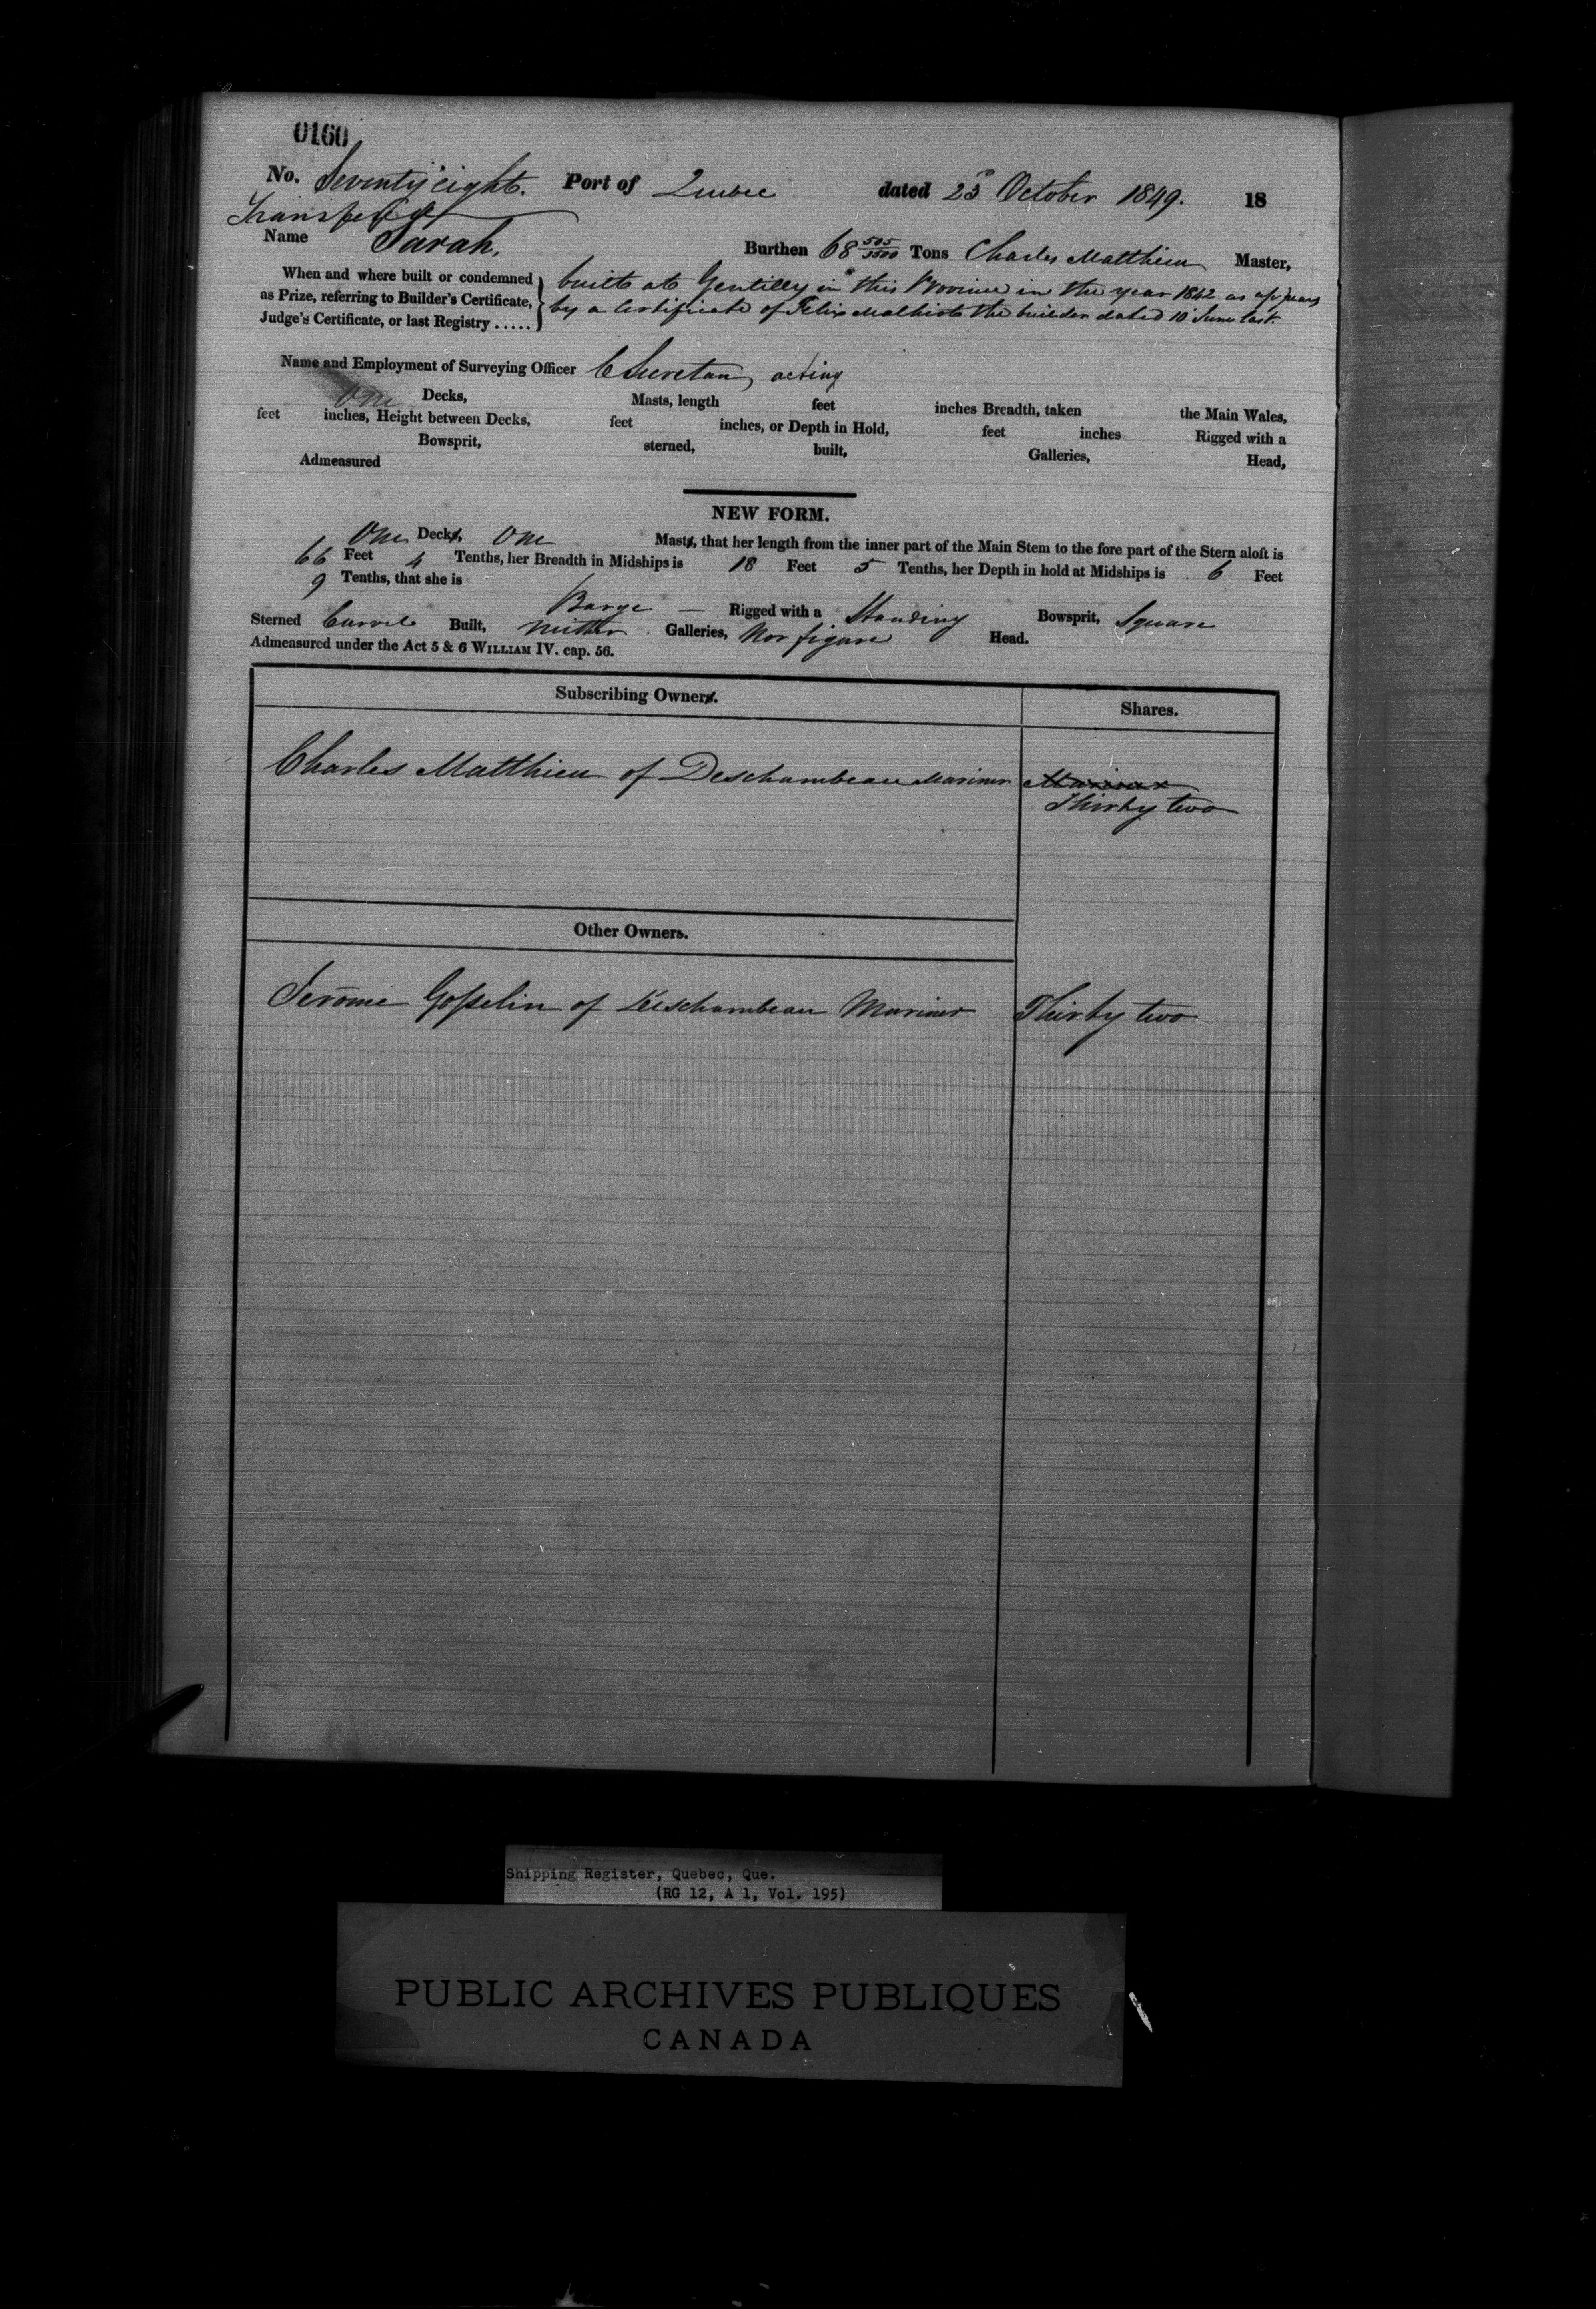 0160
No. Seventy eight. Port of Quebec dated 23d October 1849. 18
Name Sarah. Burthen 68 505/3500 Tons Charles Matthieu Master,
When and where built or condemned as Prize, referring to Builder's Certificate, Judge's Certificate, or last Registry .....
built at Gentilly in this Province in the year 1842 as appears
by a Certificate of Felix Malhiot the builder dated 10 June last.
Name and Employment of Surveying Officer C Secretan, acting
One Decks, Masts, length feet inches Breadth, taken the Main Wales,
feet inches, Height between Decks, feet inches, or Depth in Hold, feet inches Rigged with a
Bowsprit, sterned, built, Galleries, Head,
Admeasured
NEW FORM.
One Decks, One Masts, that her length from the inner part of the Main Stem to the fore part of the Stern aloft is
66 Feet 4 Tenths, her Breadth in Midships is 18 Feet 5 Tenths, her Depth in hold at Midships is 6 Feet
9 Tenths, that she is Barge Rigged with a Standing Bowsprit, Square
Sterned Carvel Built, neither Galleries, Nor figure Head.
Admeasured under the Act 5 & 6 WILLIAM IV. cap. 56.
Subscribing Owners. Shares.
Charles Matthieu of Deschambeau Mariner Mariner
Thirty two
Other Owners.
Jerôme Gosselin of Deschambeau Mariner Thirty two
Shipping Register, Quebec, Que.
(RG 12, A 1, Vol. 195)
PUBLIC ARCHIVES PUBLIQUES
CANADA